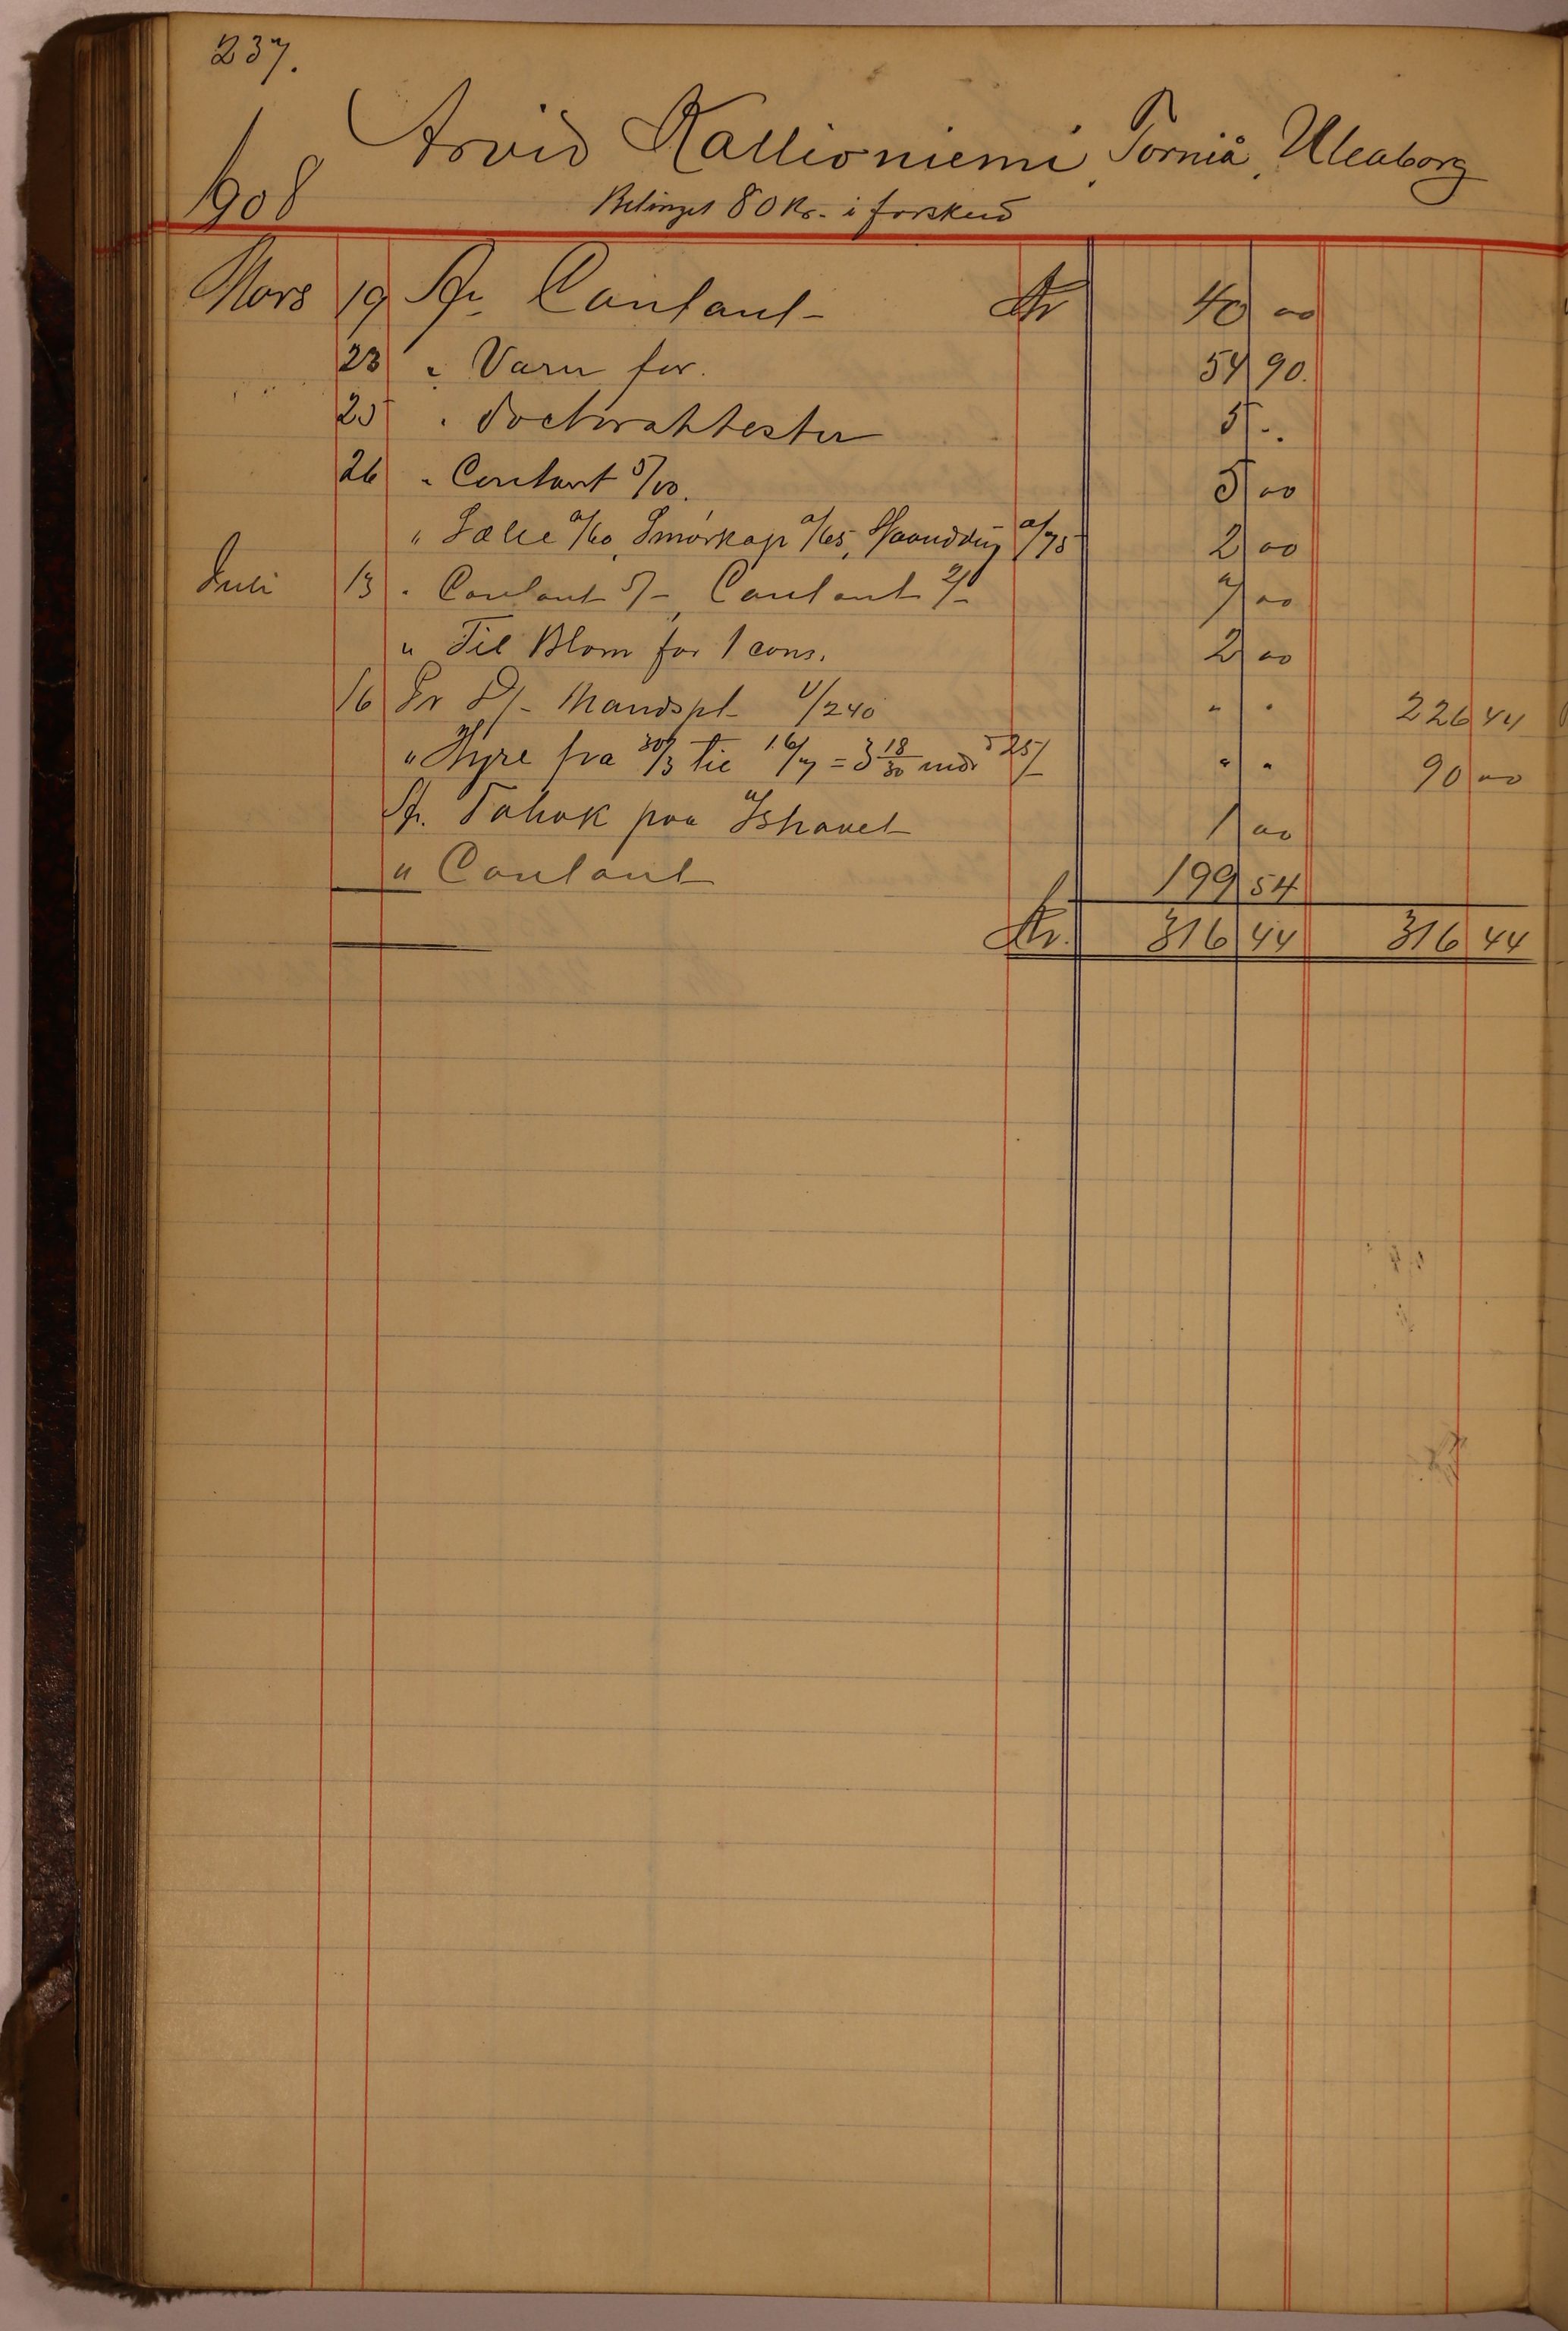 237.
Arvid Kallioniemi, Torniå, Uleaborg
1908
Betinget 80 Kr. i forskud
Mars 19 At Contant Kr 40 00
23 " Varer for. 54 90.
25 " Doctorattester 5 -.
26 " Contant 5/00. 5 00
" Sælie 0/60, Smørkop 0/65, 0/75 2 00
Juli 13 " Contant 5/-, Contant 2/- 7 00
" Til Blom for 1 cons. 2 00
16 Pr Mandspt 1/240 " " 226 44
" Hyre fra 30/3 til 16/7 = 3 18/30 mdr 25/- " " 90 00
At. Tobak paa Ishavet 1 00
" Contant 199 54
Kr. 316 44 316 44